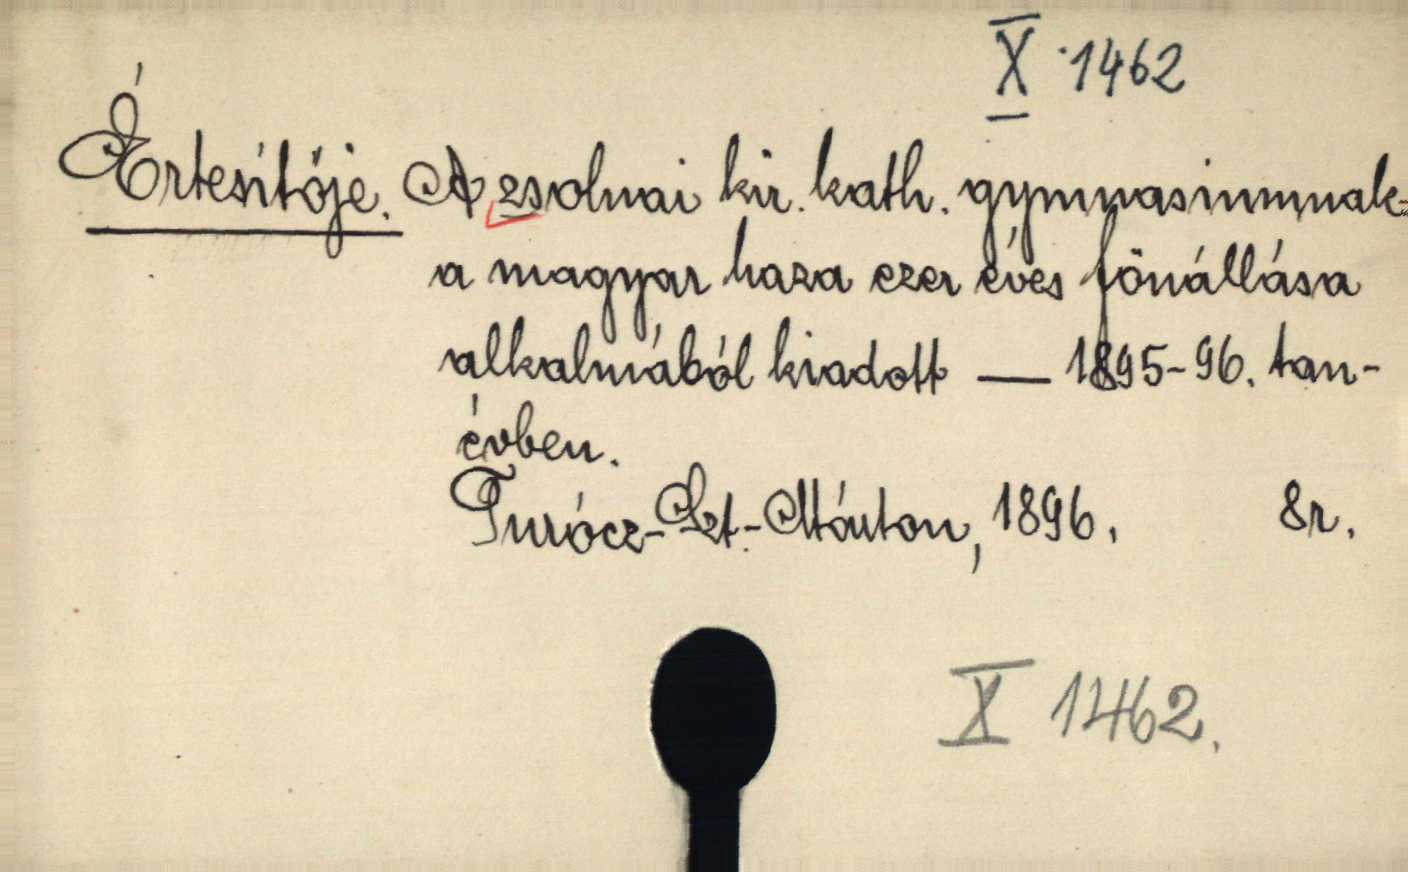 X 1462
Értesítője. A zsolnai kir. kath. gymnasiumnak
a magyar haza ezer éves fönállása
alkalmából kiadott — 1895-96. tan-
évben.
Turócz-Szt.-Márton, 1896. 8r.
X 1462.